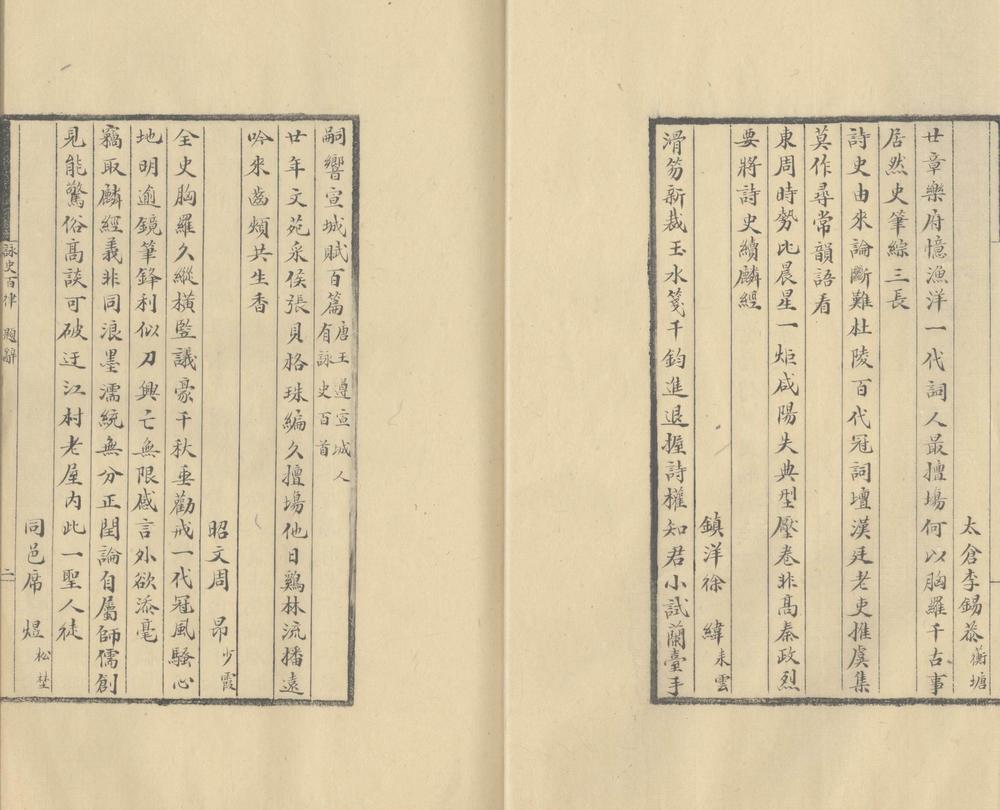 太倉李錫恭蘅塘
廿章樂府憶漁洋一代詞人最擅場何以胸羅千古事
居然史筆綜三長
詩史由來論斷難杜陵百代冠詞壇漢廷老吏推虞集
莫作尋常韻語看
東周時勢比晨星一炬咸陽失典型壓卷非高秦政烈
要將詩史續麟經
鎮洋徐緯耒雲
滑笏新裁玉水箋千鈞進退握詩權知君小試蘭臺手
嗣響宣城賦百篇唐王遵宣城人有詠史百首
廿年文苑采侯張貝格珠編久擅場他日鷄林流播遠
吟來齒頰共生香
昭文周昂少霞
全史胸羅久縱橫竪議豪千秋垂勸戒一代冠風騷心
地明逾鏡筆鋒利似刀興亡無限感言外欲添毫
竊取麟經義非同浪墨濡統無分正閏論自屬師儒創
見能驚俗高談可破迂江村老屋內此一聖人徒
同邑席煜松埜
詠史百律 題辭 二